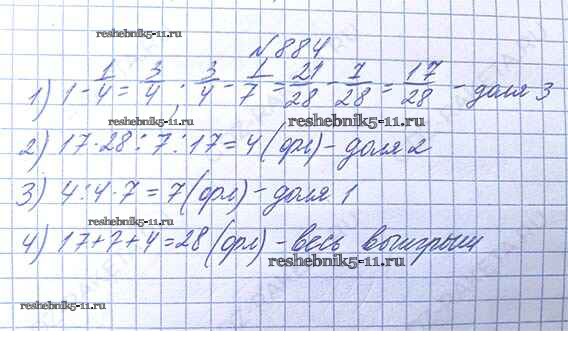 reshebnik5-11.ru
№884
1) 1 - 1/4 = 3/4 ; 3/4 - 1/7 = 21/28 - 7/28 = 17/28 - доля 3
reshebnik5-11.ru
2) 17·28:7:17=4 (фл) - доля 2
3) 4:4·7=7 (фл) - доля 1
reshebnik5-11.ru
4) 17+7+4=28 (фл) - весь выигрыш
reshebnik5-11.ru
reshebnik5-11.ru